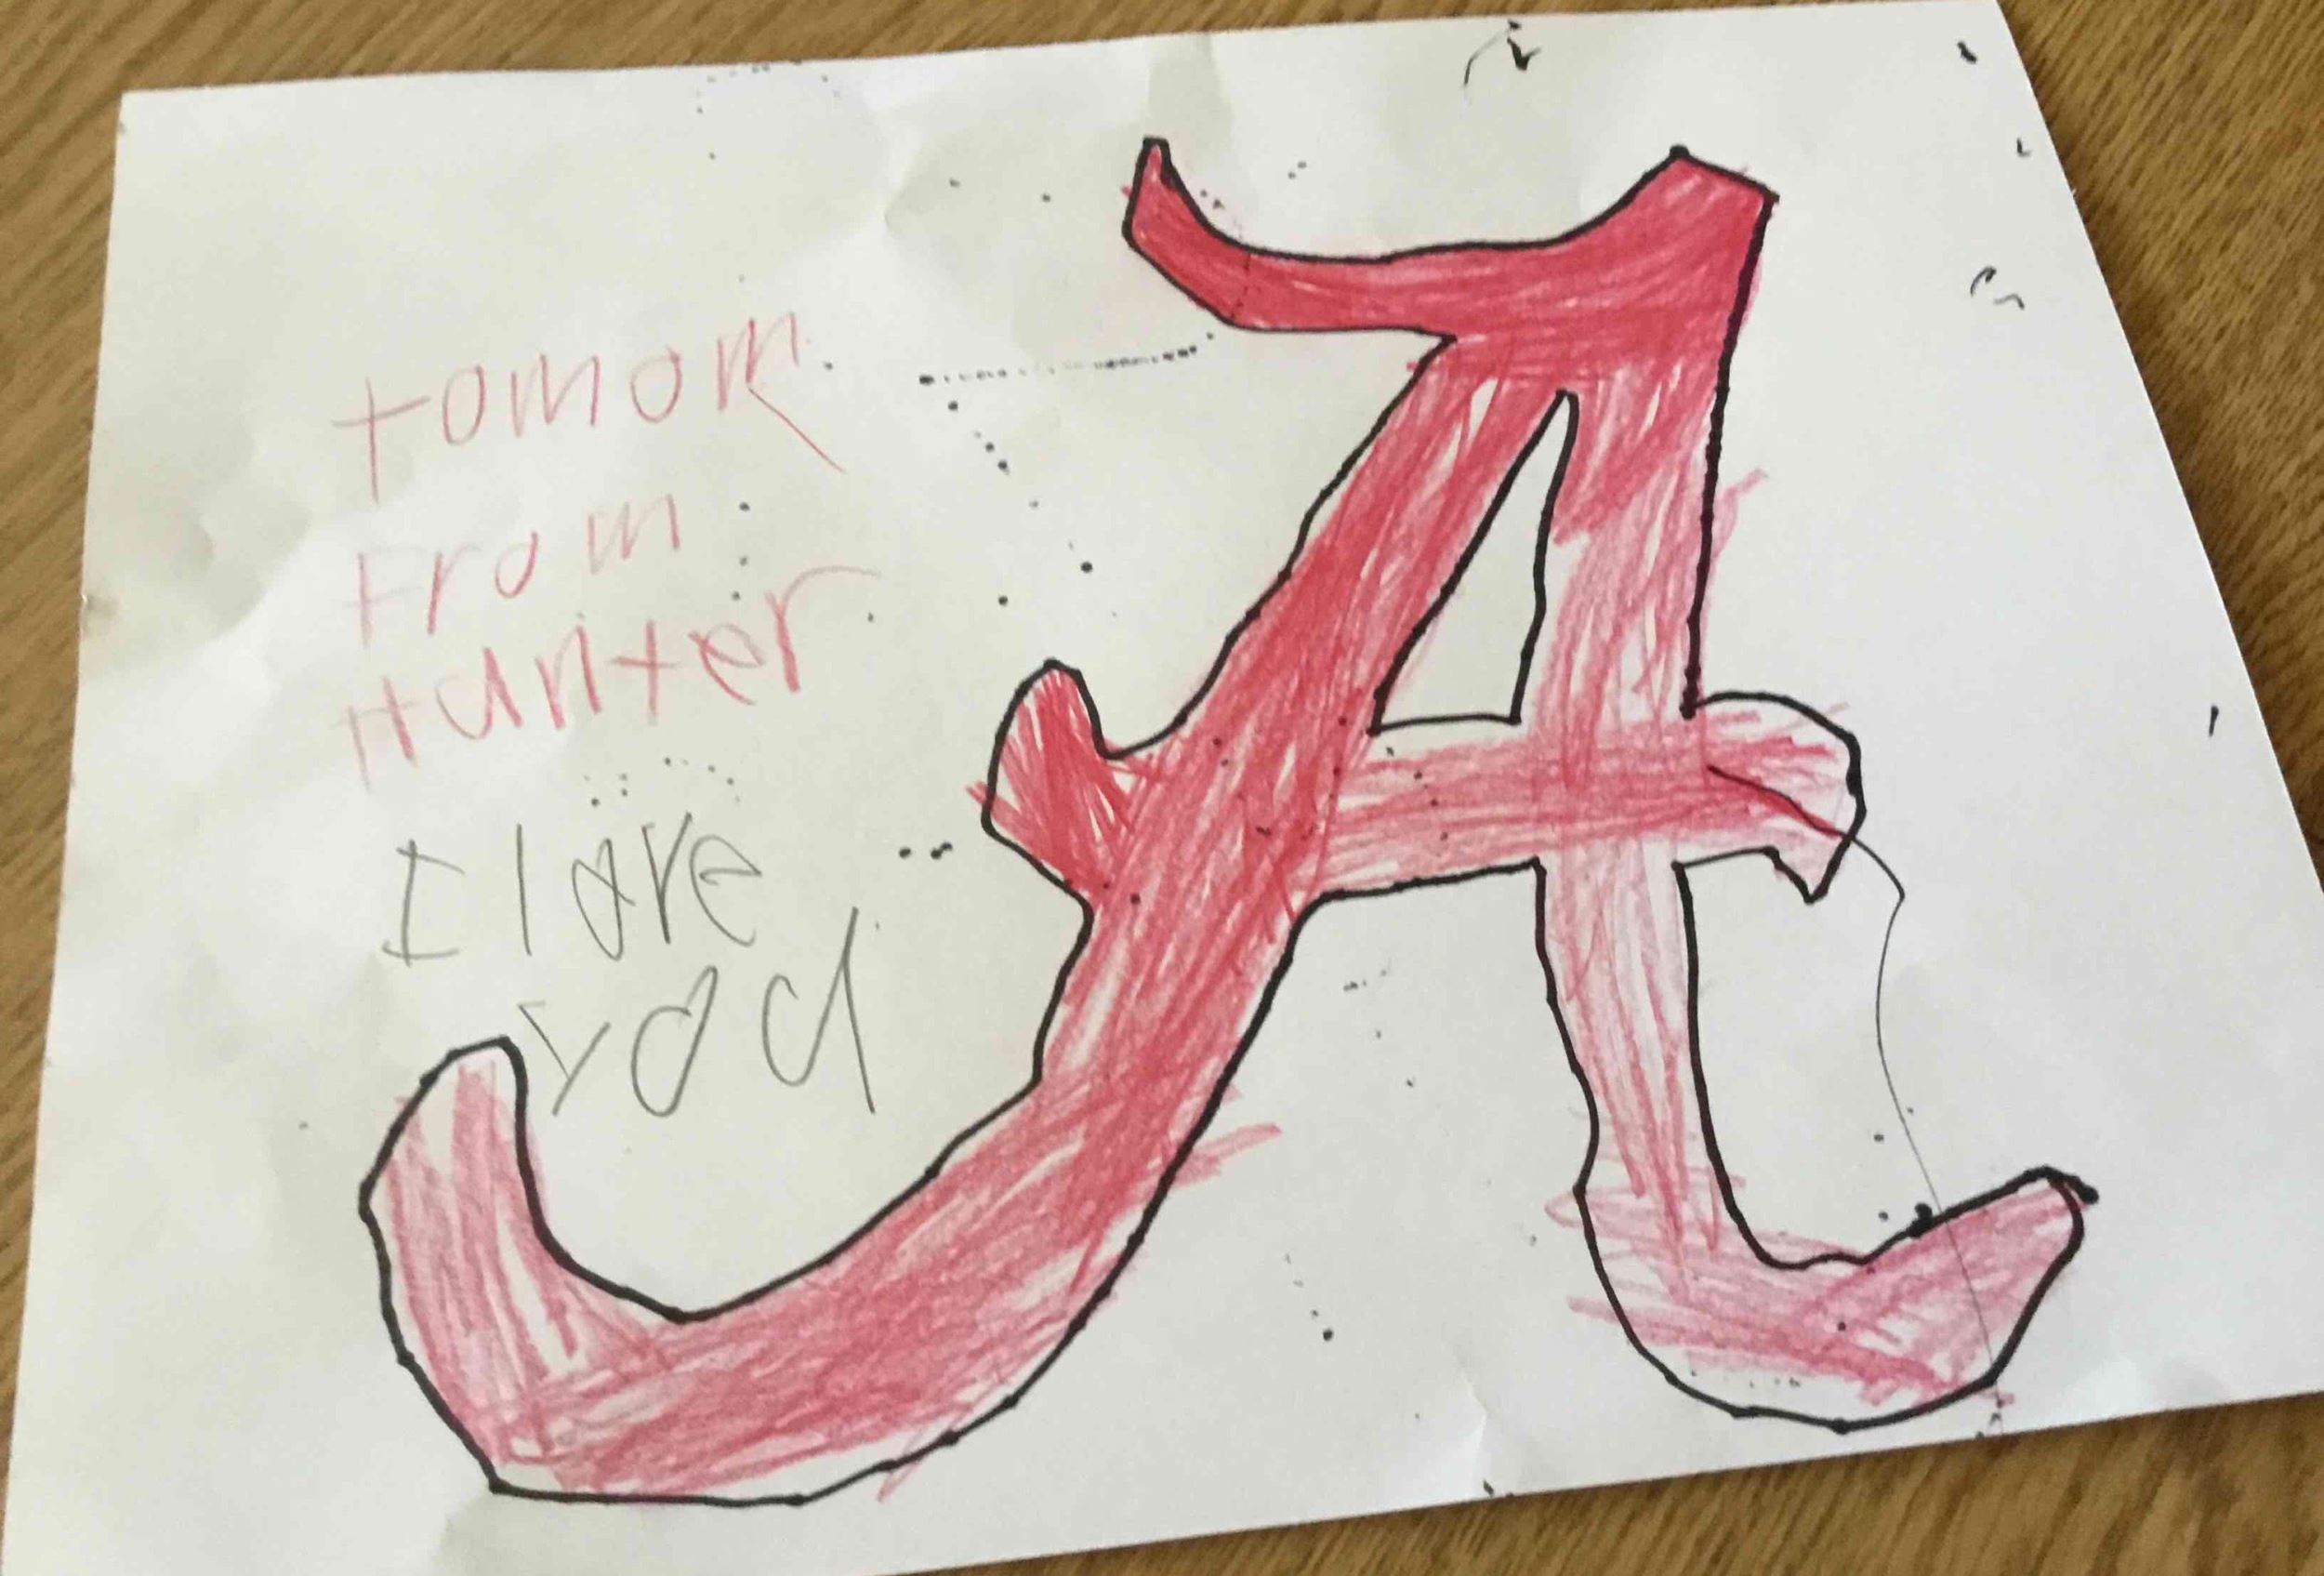 tomom
From
Hunter
I love
you
A